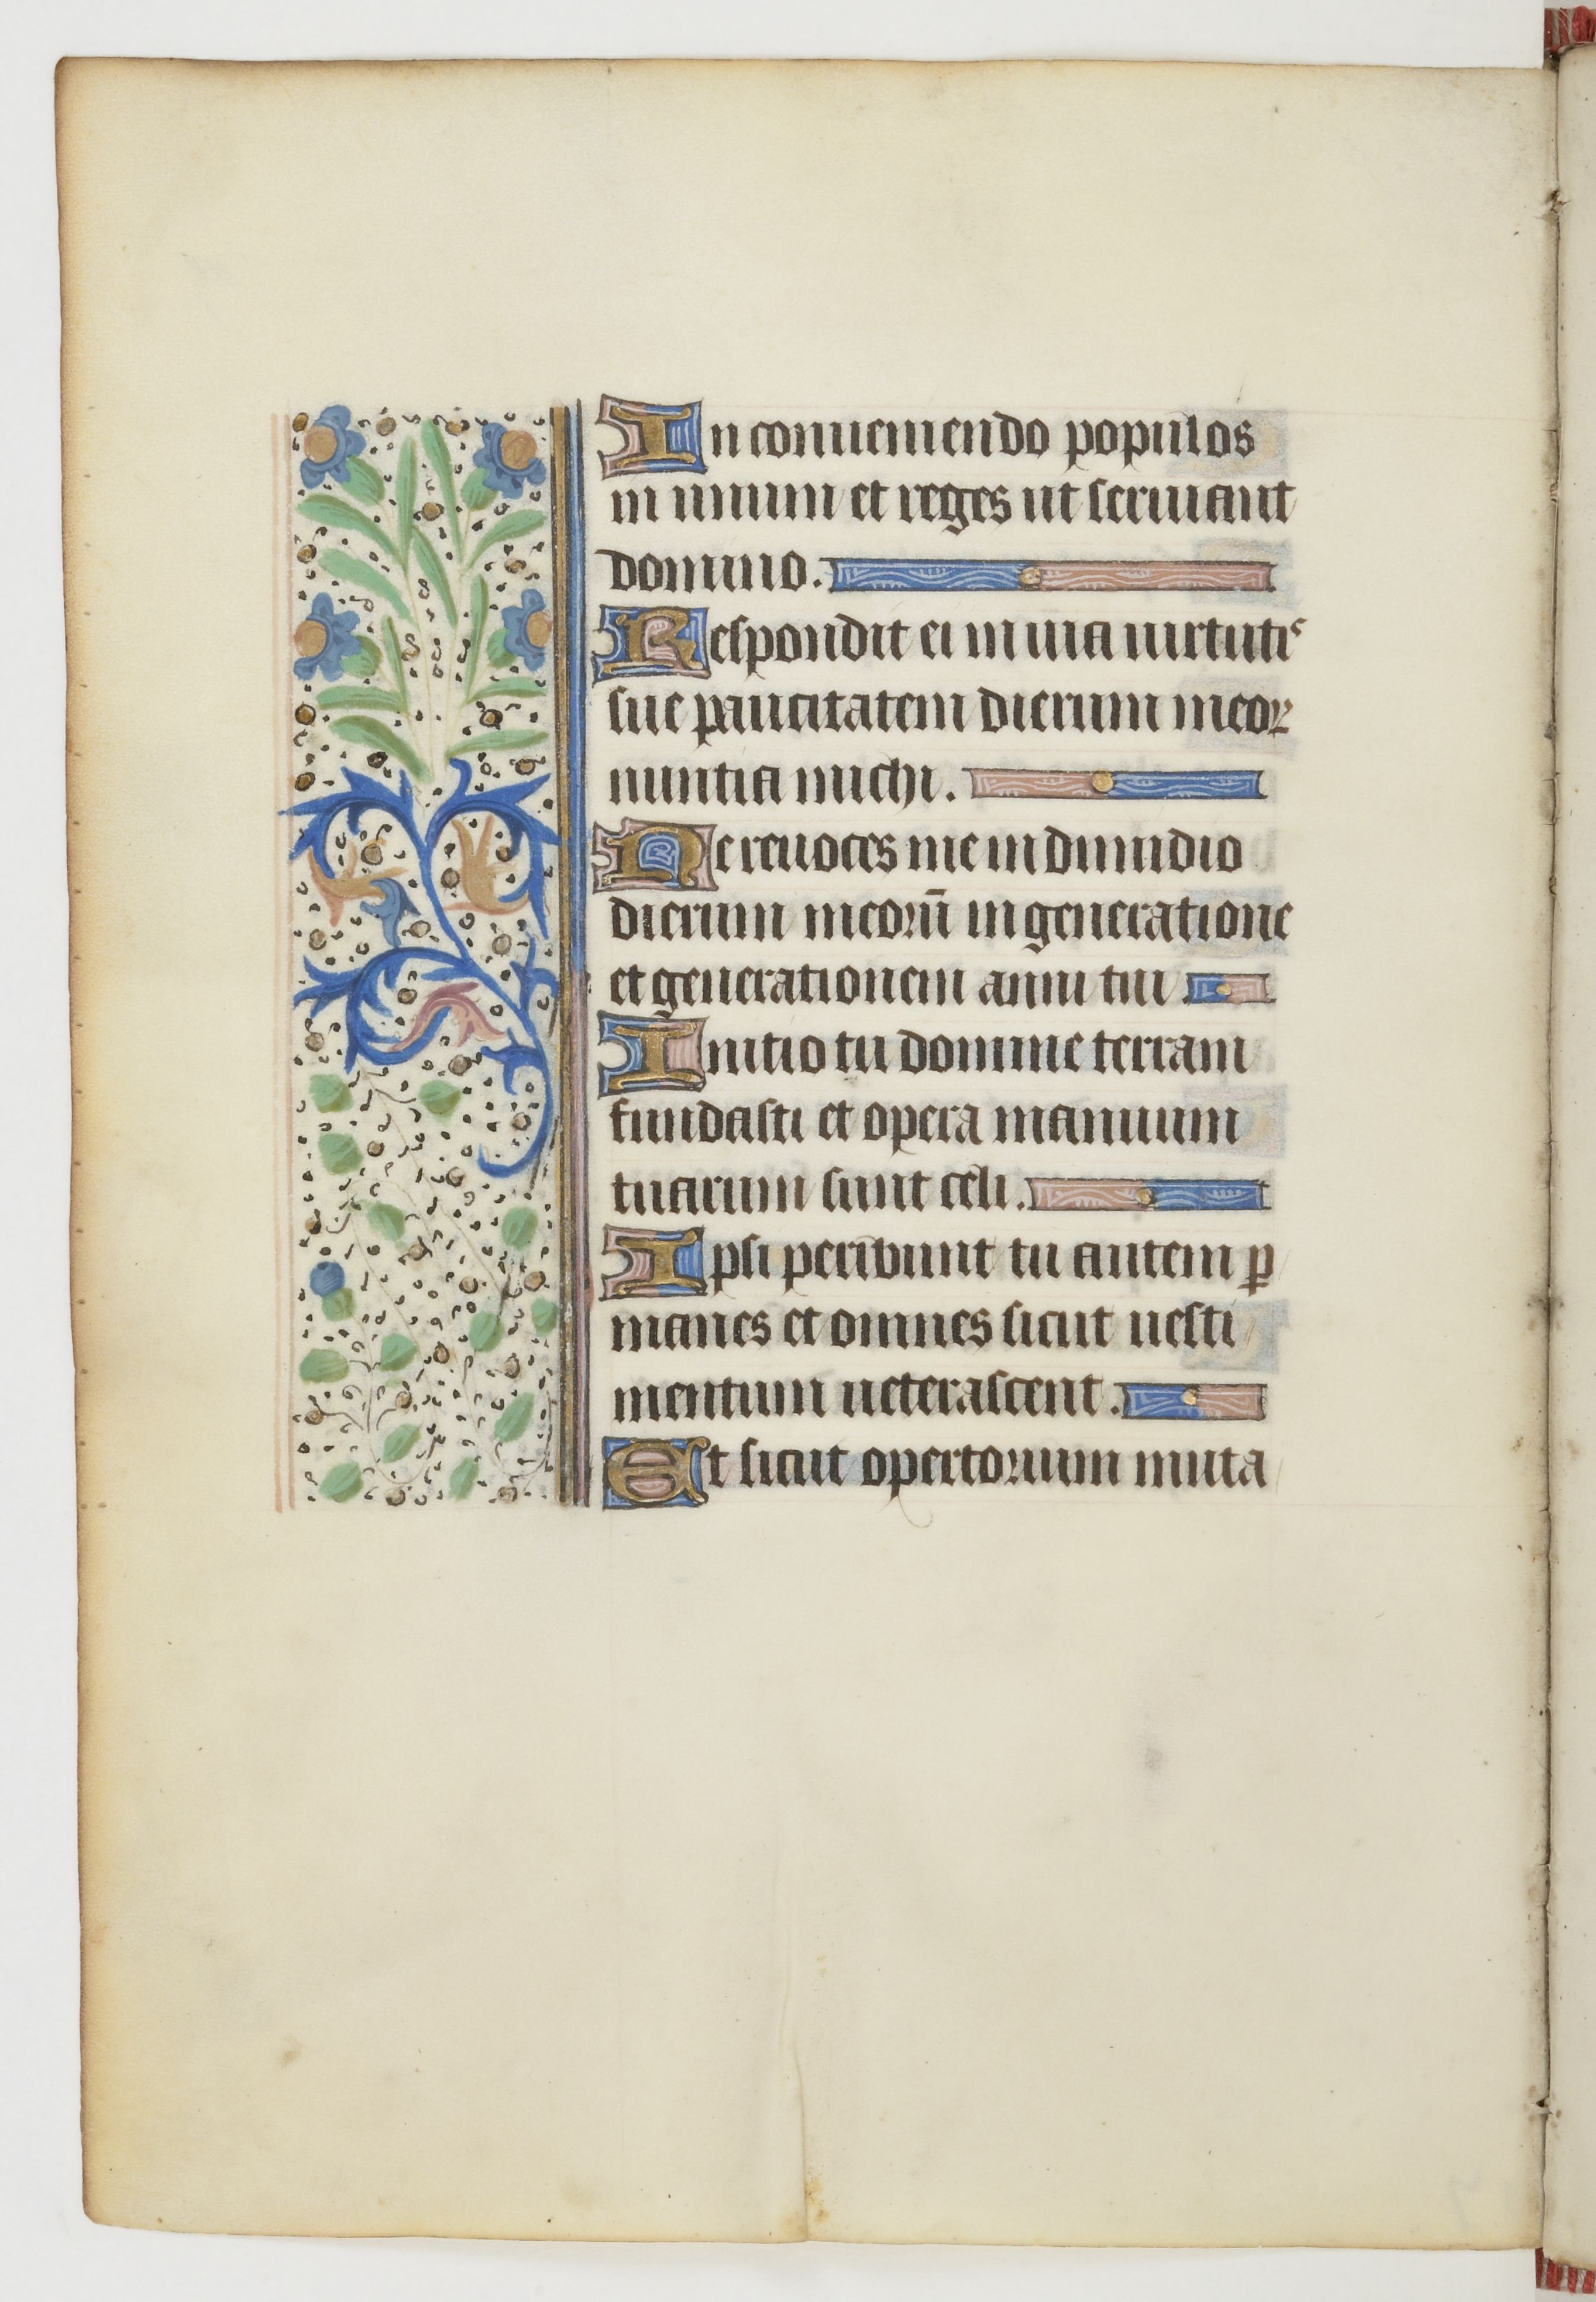 In conueniendo populos
in unum et reges ut seruiant
domino.
Respondit ei in uia uirtutis
sue paucitatem dierum meoꝝ
nuntia michi.
Ne reuoces me in dimidio
dierum meorū in generatione
et generationem anni tui
Initio tu domine terram
fundasti et opera manuum
tuarum sunt celi.
Ipsi peribunt tu autem ꝑ
manes et omnes sicut uesti
mentum ueterascent.
Et sicut opertorium muta